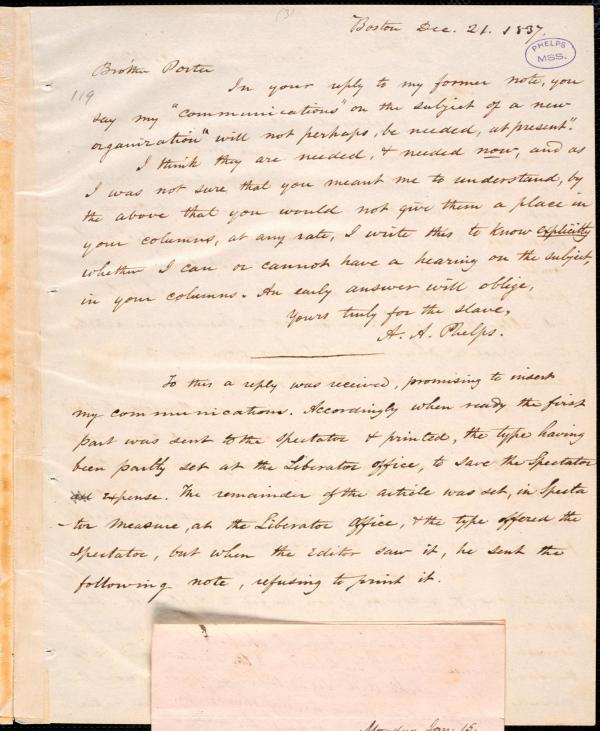 (3)
Boston Dec. 21. 1837.
PHELPS
MSS.
Brother Porter
119
In your reply to my former note, you
say my "communications" on the subject of a new
organization "will not perhaps, be needed, at present".
I think they are needed, & needed now, and as
I was not sure that you meant me to understand, by
the above that you would not give them a place in
your columns, at any rate, I write this to know explicitly
whether I can or cannot have a hearing on the subject,
in your columns. An early answer will oblige,
Yours truly for the slave,
A. A. Phelps.
To this a reply was received, promising to insert
my communications. Accordingly when ready the first
part was sent to the Spectator & printed, the type having
been partly set at the Liberator office, to save the Spectator
expense. The remainder of the article was set, in Specta
-tor measure, at the Liberator office, & the type offered the
Spectator, but when the Editor saw it, he sent the
following note, refusing to print it.
Monday Jan. 15.